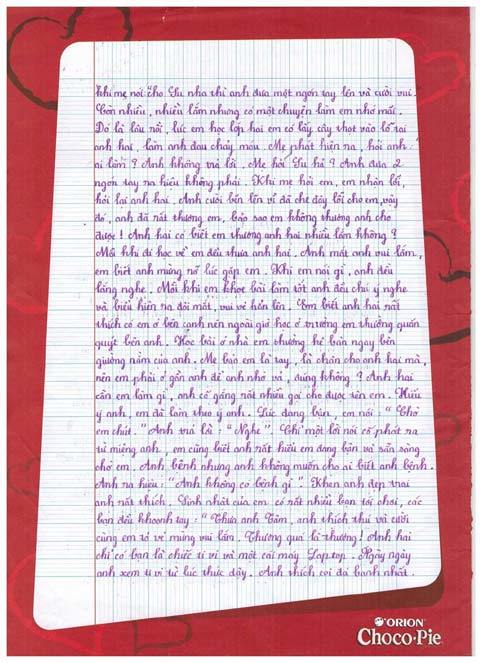 khi mẹ nói cho. Su nha thì anh đưa một ngón tay lên và cười vui.
Còn nhiều, nhiều lắm nhưng có một chuyện làm em nhớ mãi.
Đó là lâu rồi, lúc em học lớp hai em có lấy cây thọt vào lỗ tai
anh hai, làm anh đau chảy máu. Mẹ phát hiện ra, hỏi anh:
ai làm? Anh không trả lời. Mẹ hỏi Su hả? Anh đưa 2
ngón tay ra hiệu không phải. Khi mẹ hỏi em, em nhận lỗi,
hỏi lại anh hai. Anh cười bẽn lẽn vì đã che đậy lỗi cho em, vậy
đó, anh đã rất thương em, bảo sao em không thương anh cho
được! Anh hai có biết em thương anh hai nhiều lắm không?
Mỗi khi đi học về em đều thưa anh hai. Anh mắt anh vui lắm,
em biết anh mừng rỡ lúc gặp em. Khi em nói gì, anh đều
lắng nghe. Mỗi khi em khoe bài làm tốt anh đều chú ý nghe
và biểu hiện ra đôi mắt, vui vẻ hẳn lên. Em biết anh hai rất
thích có em ở bên cạnh nên ngoài giờ học ở trường em thường quấn
quýt bên anh. Học bài ở nhà em thường kê bàn ngay bên
giường nằm của anh. Mẹ bảo em là tay, là chân cho anh hai mà,
nên em phải ở gần anh để anh nhờ vả, đúng không? Anh hai
cần em làm gì, anh cố gắng rất nhiều gọi cho được tên em. Hiểu
ý anh, em đã làm theo ý anh. Lúc đang bận, em nói: "Chờ
em chút." Anh trả lời: "Nghe". Chỉ một lời nói cố phát ra
từ miệng anh, em cũng biết anh rất hiểu em đang bận và sẵn sàng
chờ em. Anh bệnh nhưng anh không muốn cho ai biết anh bệnh.
Anh ra hiệu: "Anh không có bệnh gì". Khen anh đẹp trai
anh rất thích. Sinh nhật của em có rất nhiều bạn tới chơi, các
bạn đều khoanh tay: "Thưa anh Tâm, anh thích thú và cười
cũng em tỏ vẻ mừng vui lắm. Thương quá là thương! Anh hai
chỉ có bạn là chiếc ti vi và một cái máy Laptop. Ngày ngày
anh xem ti vi từ lúc thức dậy. Anh thích coi đá banh nhất.
ORION
Choco·Pie